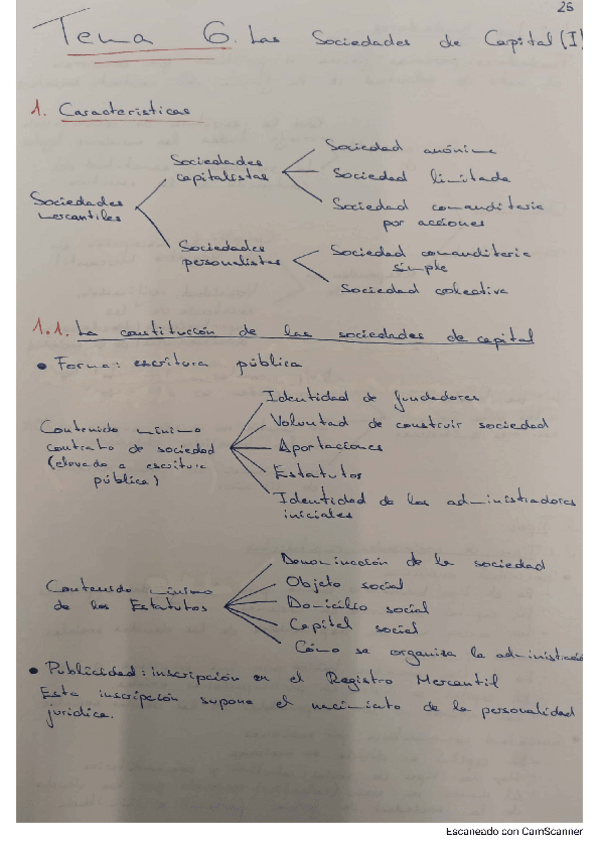 26
Tema 6. Las Sociedades de Capital (I)
1. Características
Sociedades mercantiles
Sociedades capitalistas
Sociedad anónima
Sociedad limitada
Sociedad comanditaria por acciones
Sociedades personalistas
Sociedad comanditaria simple
Sociedad colectiva
1.1. La constitución de las sociedades de capital
• Forma: escritura pública
Contenido mínimo
contrato de sociedad
(elevado a escritura
pública)
Identidad de fundadores
Voluntad de construir sociedad
Aportaciones
Estatutos
Identidad de los administradores
iniciales
Contenido mínimo
de los Estatutos
Denominación de la sociedad
Objeto social
Domicilio social
Capital social
Cómo se organiza la administración
• Publicidad: inscripción en el Registro Mercantil
Esta inscripción supone el nacimiento de la personalidad
jurídica.
Escaneado con CamScanner